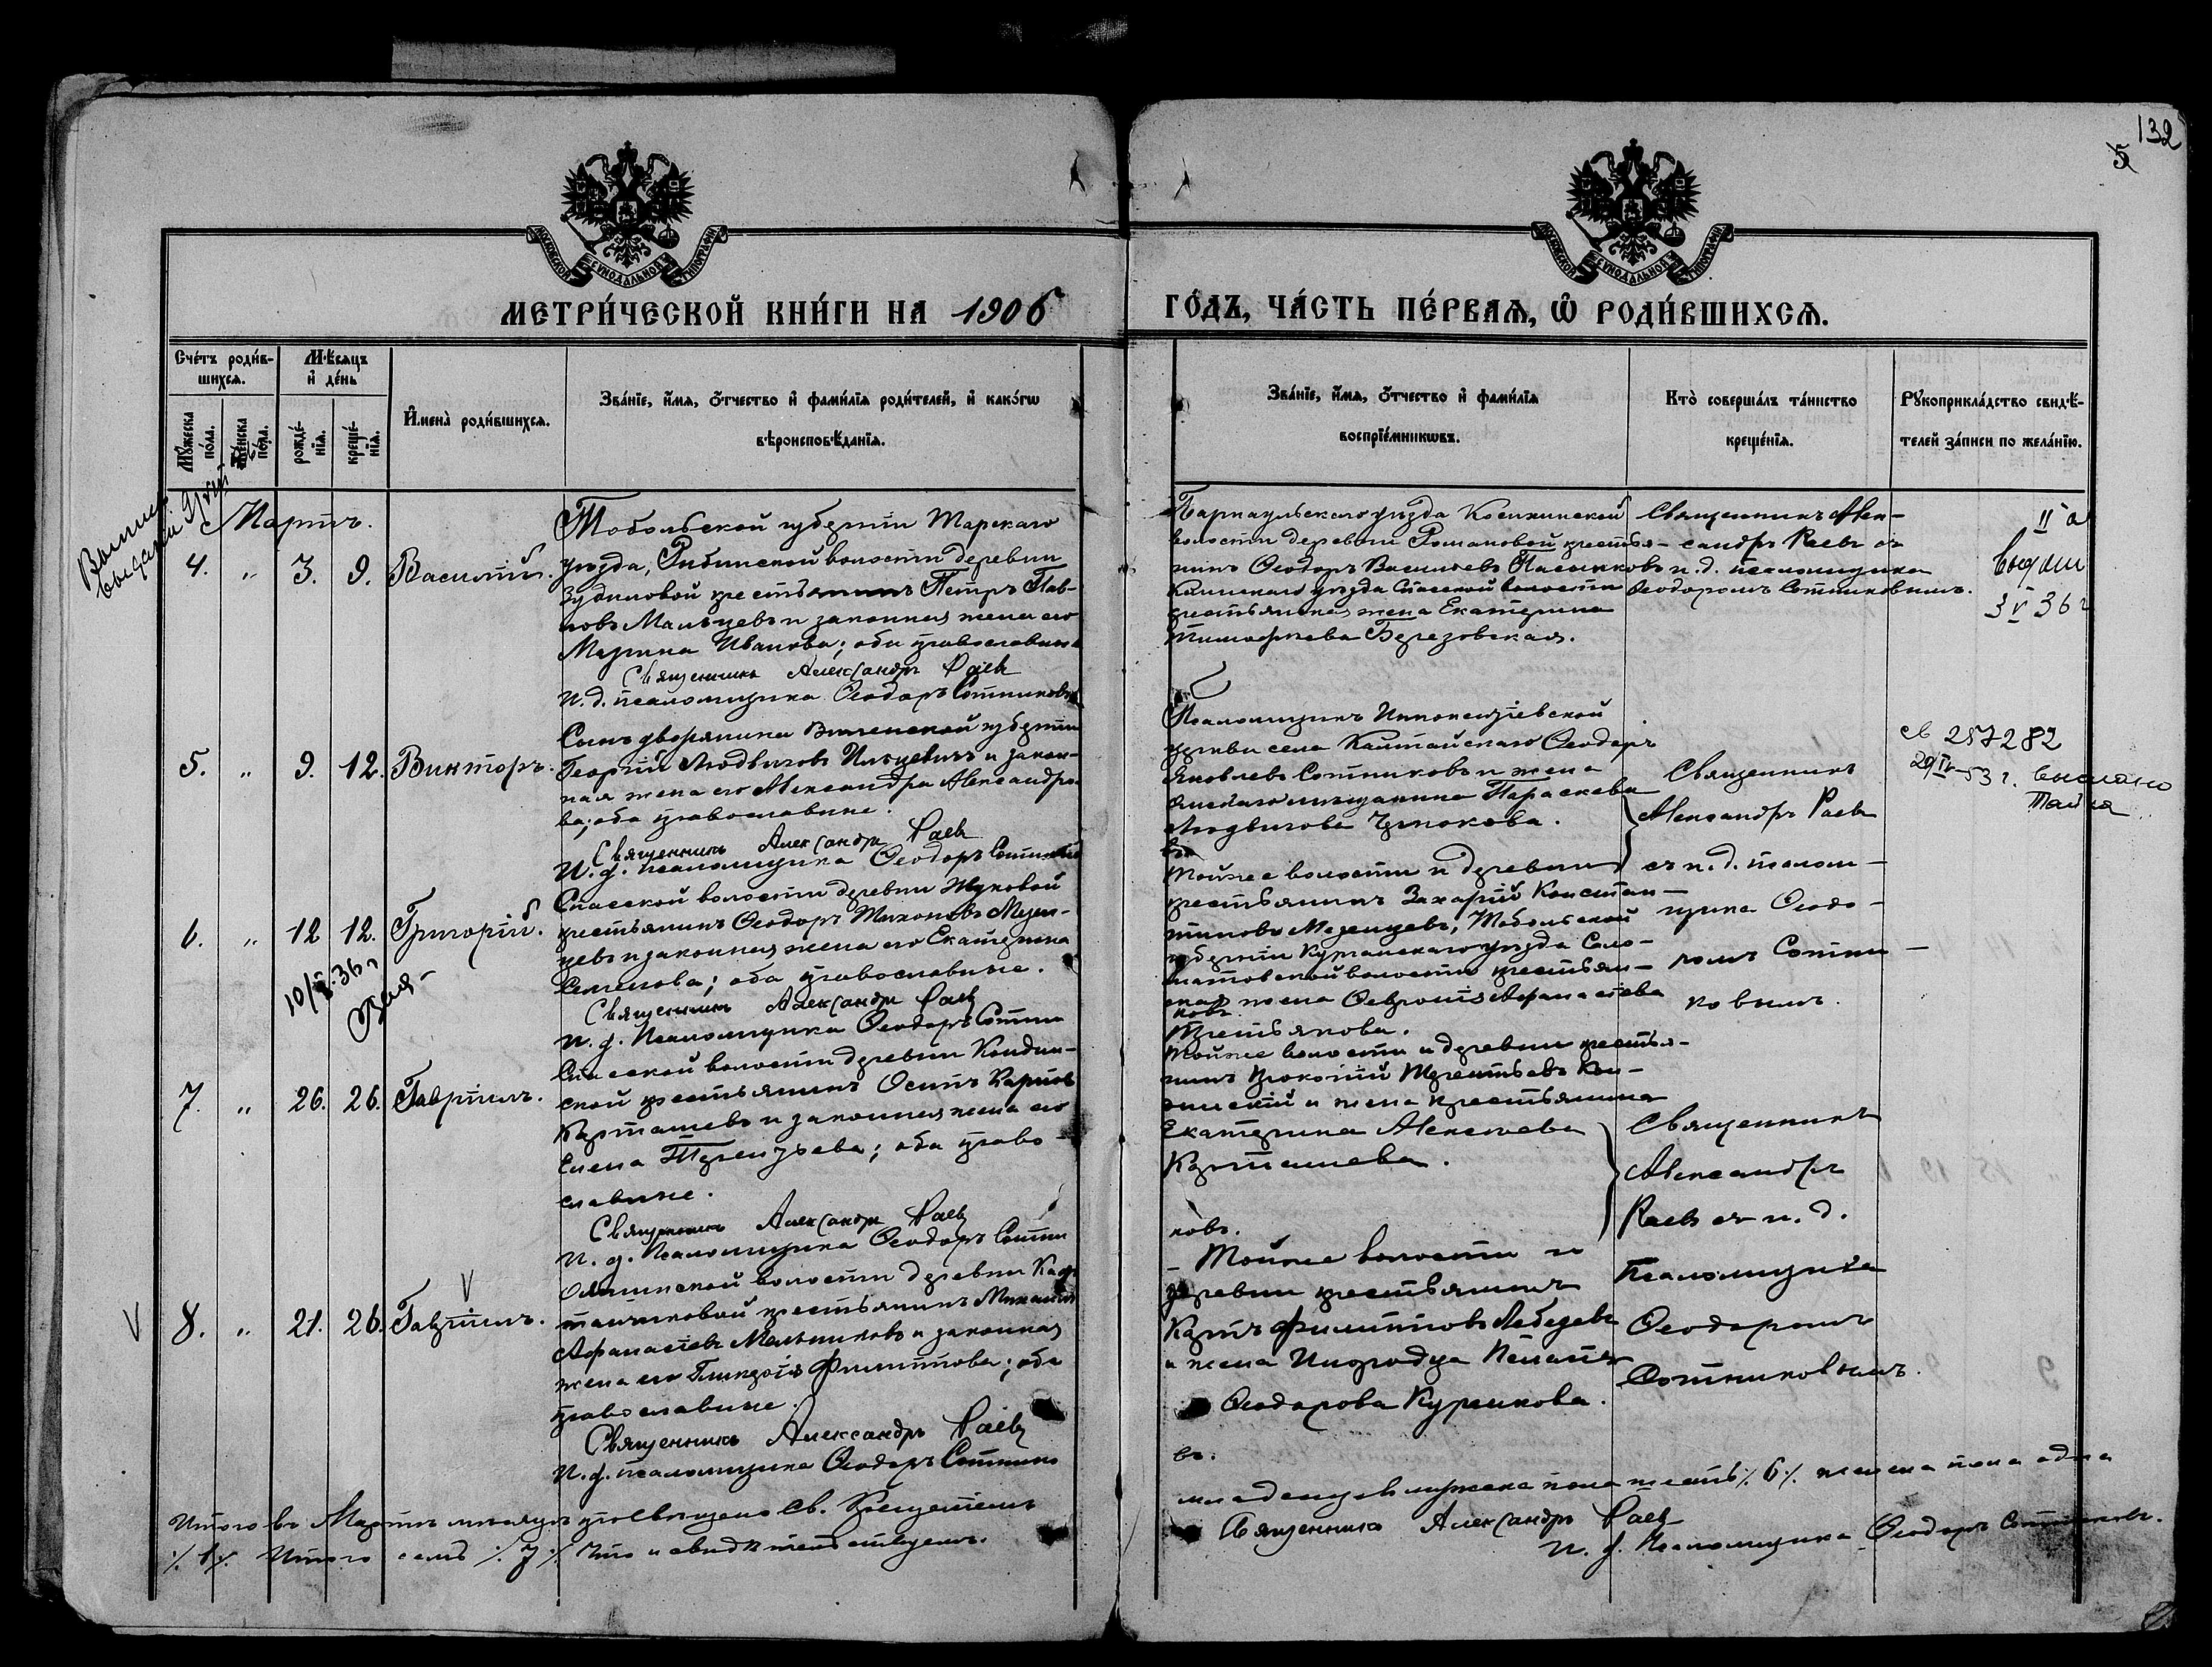 132
5
МОСКОВСКОЙ СѴНОДАЛЬНОЙ ТИПОГРАФІИ
МОСКОВСКОЙ СѴНОДАЛЬНОЙ ТИПОГРАФІИ
МЕТРИ́ЧЕСКОЙ КНИ́ГИ НА 1906
ГО́ДЪ, ЧА́СТЬ ПЕ́РВАѦ, Ѡ РОДИ́ВШИХСѦ.
Сче́тъ роди́в-
шихсѧ.
Мꙋ́жеска
по́ла.
Же́нска
по́ла.
Мѣ́сѧцъ
и҆ де́нь
рожде́-
нїѧ.
креще́-
нїѧ.
И҆мена̀ роди́вшихсѧ.
Зва́нїе, и҆́мѧ, ѻ҆́тчество и҆ фами́лїѧ роди́телей, и҆ како́гѡ
вѣроисповѣ́данїѧ.
Зва́нїе, и҆́мѧ, ѻ҆́тчество и҆ фами́лїѧ
воспрїе́мникѡвъ.
Кто̀ соверша́лъ та́инство
креще́нїѧ.
Рꙋкоприкла́дство свидѣ́-
телей за́писи по жела́нїю.
Мартъ.
4. " 3. 9. Василій.
Тобольской губерніи Тарскаго
уѣзда, Рыбинской волости деревни
Зубиловой крестьянинъ Петръ Пав-
ловъ Мальцевъ и законная жена его
Марина Иванова; оба православные
Священникъ Александръ Раевъ
И. д. псаломщика Ѳеодоръ Сотниковъ
Барнаульскаго уѣзда Косихинской
волости деревни Романовой крестья-
нинъ Ѳеодоръ Васильевъ Пасынковъ и
Каинскаго уѣзда Спасской волости
крестьянская жена Екатерина
Тимофеева Березовская.
Священникъ Алек-
сандръ Раевъ съ
и. д. псаломщика
Ѳеодоромъ Сотниковымъ.
5. " 9. 12. Викторъ.
Сынъ дворянина Виленской губерніи
Георгій Людвиговъ Ильцевичъ и закон-
ная жена его Александра Александро-
ва; оба православные.
Священникъ Александръ Раевъ
И. д. псаломщика Ѳеодоръ Сотнико
въ
Псаломщикъ Иннокентіевской
церкви села Калтайскаго Ѳеодоръ
Яковлевъ Сотниковъ и жена
мѣщанина Параскева
Людвигова
Священникъ
Александръ Раевъ
съ и. д. псалом-
щика Ѳеодо-
ромъ Сотни-
ковымъ.
6. " 12 12. Григорій.
Спасской волости деревни Жуковой
крестьянинъ Ѳеодоръ Тихоновъ Мезен-
цевъ и законная жена его Екатерина
Семенова; оба православные.
Священникъ Александръ Раевъ
И. д. Псаломщика Ѳеодоръ Сотни
ковъ
Тойже волости и деревни
крестьянинъ Захарій Констан-
тиновъ Мезенцевъ, Тобольской
губерніи Курганскаго уѣзда Соло-
матовской волости крестьян-
ская жена Ѳевронія Афанасіева
Третьякова.
7. " 26. 26. Гавріилъ.
Спасской волости деревни Кандин-
ской крестьянинъ Осипъ Карповъ
Карташевъ и законная жена его
Елена Терентьева; оба право-
славные.
Священникъ Александръ Раевъ
И. д. Псаломщика Ѳеодоръ Сотни
ковъ.
Тойже волости и деревни крестья-
нинъ Прокопій Терентьевъ Кан-
динскій и жена крестьянина
Екатерина Алексѣева
Карташева.
Священникъ
Александръ
Раевъ съ и. д.
Псаломщика
Ѳеодоромъ
Сотниковымъ.
8. " 21. 26. Гавріилъ.
волости деревни
крестьянинъ Михаилъ
Афанасіевъ Мельниковъ и законная
жена его Гликерія Филиппова; оба
православные.
Священникъ Александръ Раевъ
И. д. псаломщика Ѳеодоръ Сотнико
въ.
Тойже волости и
деревни крестьянинъ
Карпъ Филипповъ Лебедевъ
и жена Инородца Пелагія
Ѳеодорова Курсикова.
Итого въ Мартѣ мѣсяцѣ просвѣщено Св. Крещеніемъ
младенцевъ мужеска пола шесть ٪ 6 ٪ женска пола одна
٪ 1 ٪ Итого семь ٪ 7 ٪ Что и свидѣтельствуемъ.
Священникъ Александръ Раевъ
И. д. Псаломщика Ѳеодоръ Сотниковъ.
3 V 36 г
св 257282
29 IV-53 г. выслано